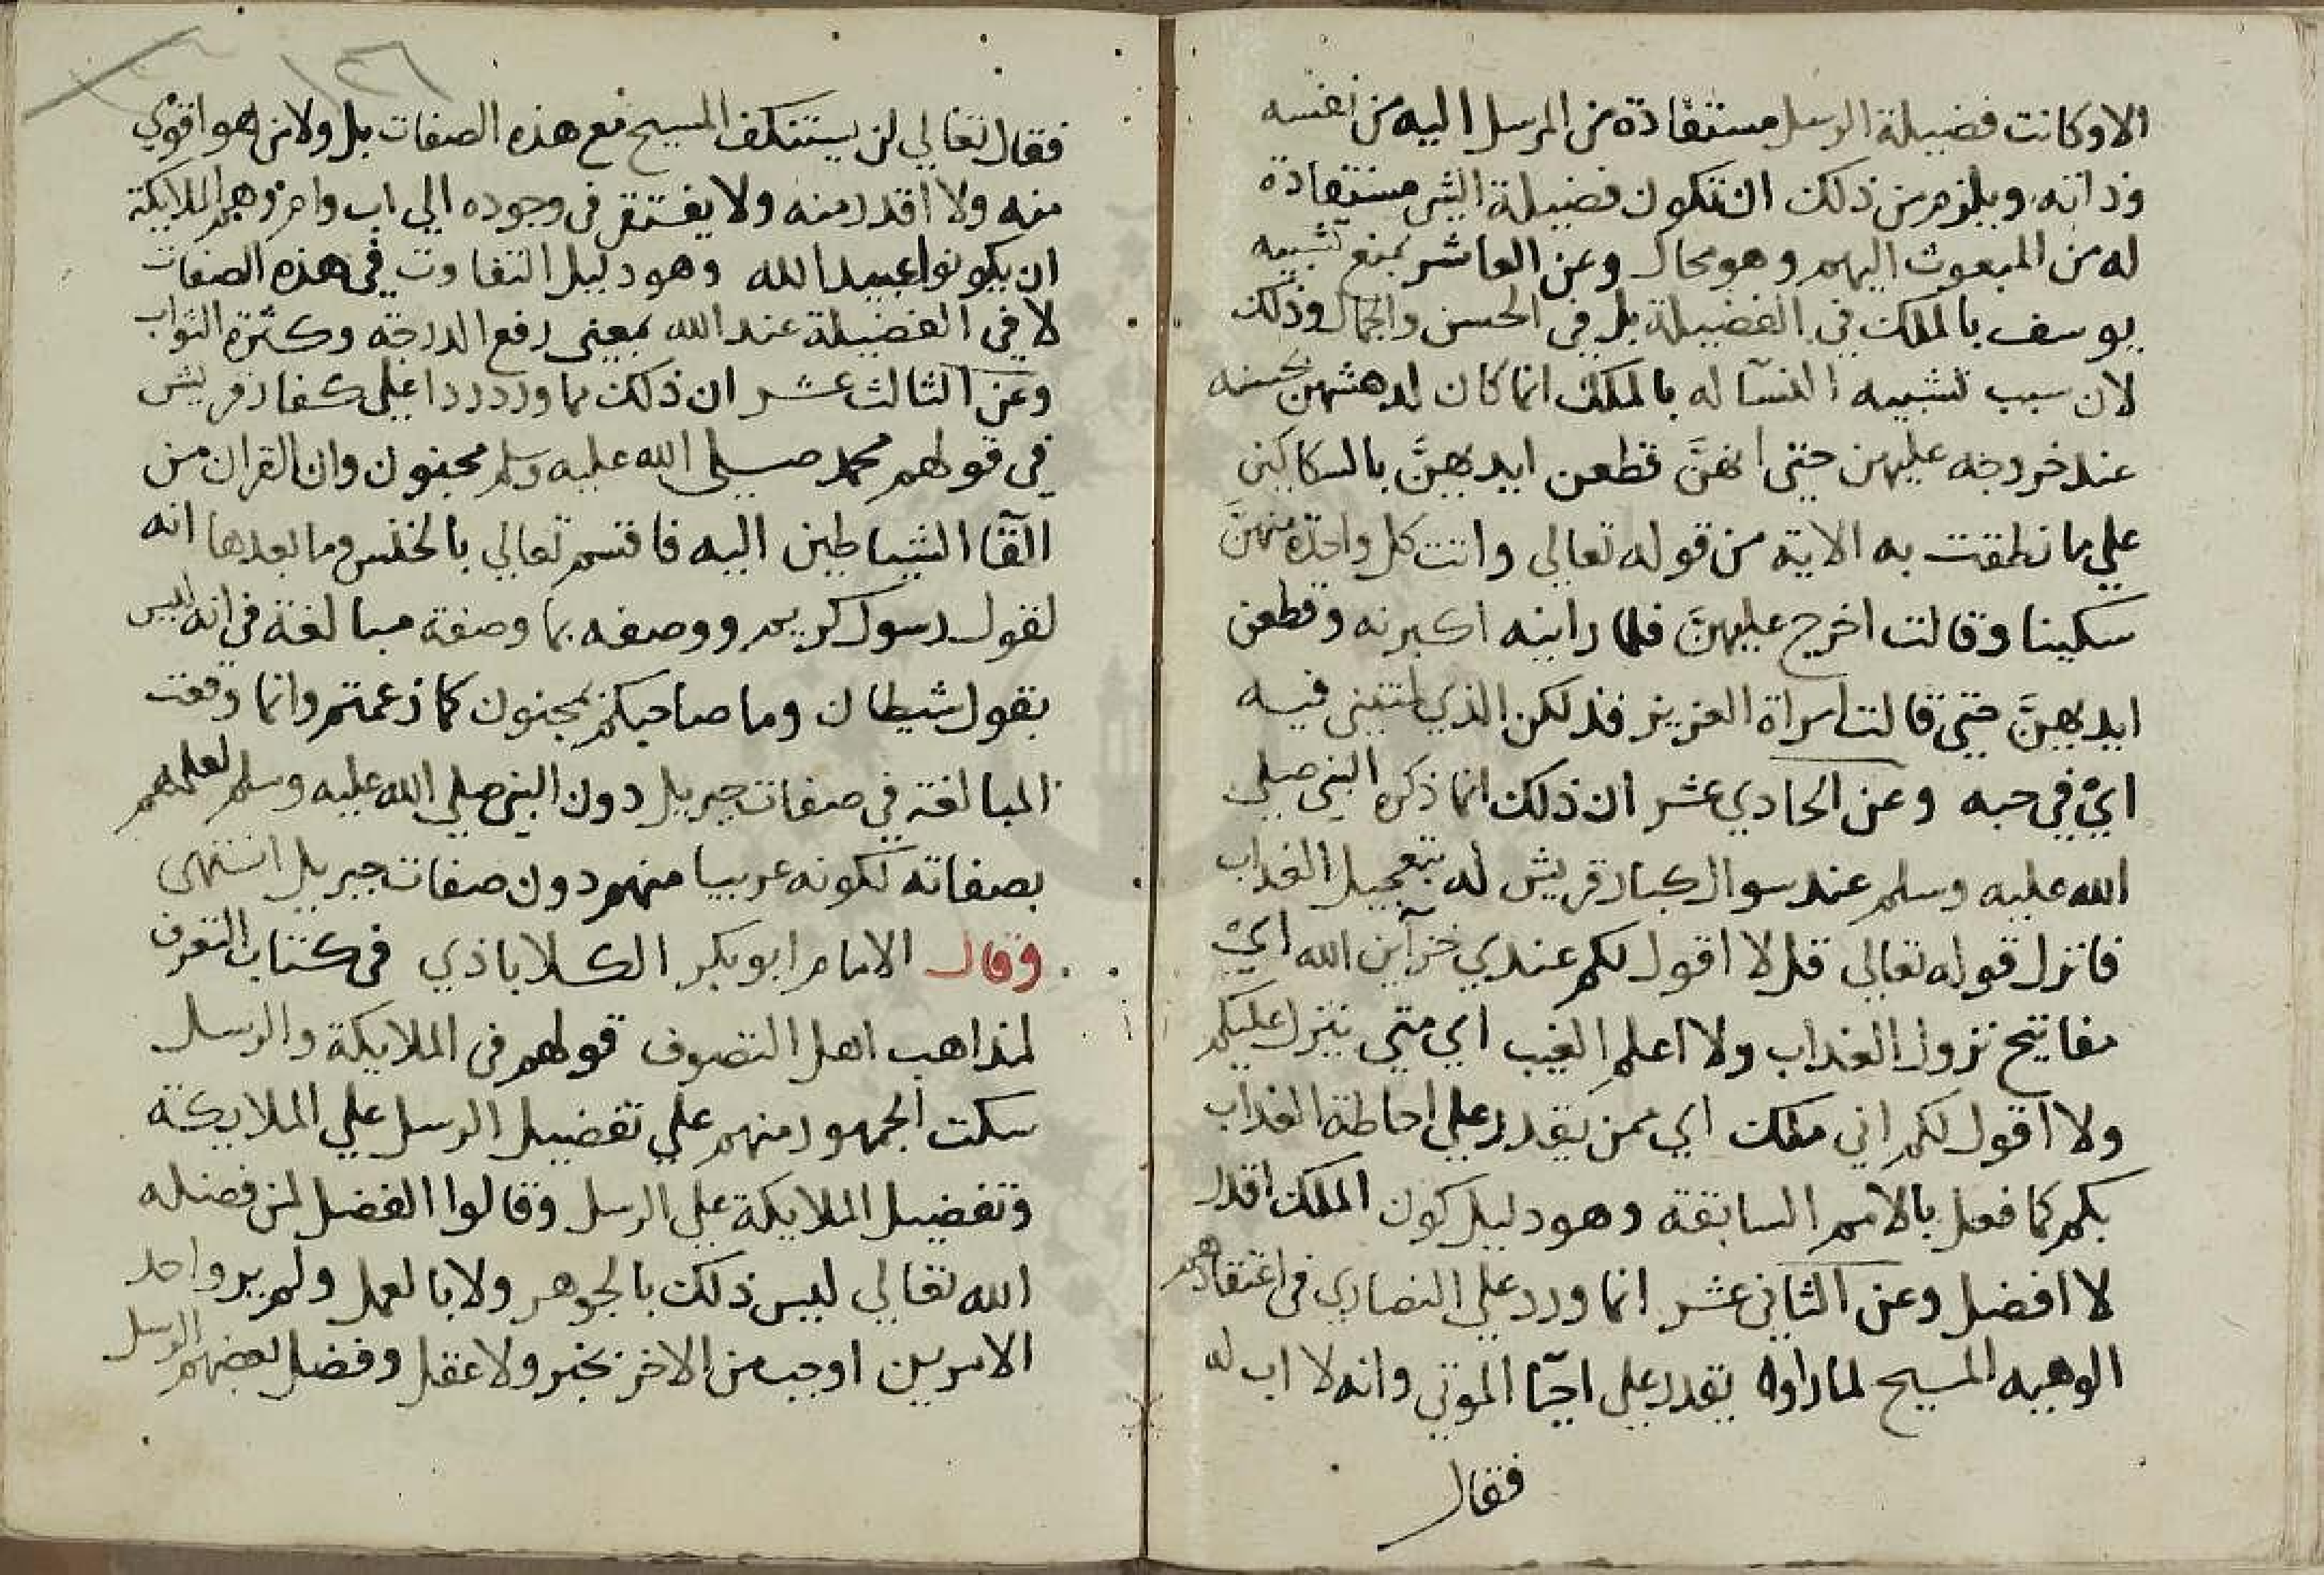 الا وكانت فضيلة الرسل مستفادة من المرسل اليه من نفسه
وذاته ويلزم من ذلك ان تكون فضيلة النبي مستفادة
له من المبعوث اليهم وهو محال وعن العاشر بمنع تشبيه
يوسف بالملك في الفضيلة بل في الحسن والجمال وذلك
لان سبب تشبيه النسآ له بالملك انما كان لدهشهن بحسنه
عند خروجه عليهن حتى انهنَّ قطعن ايديهنَّ بالسكاكين
علي ما نطقت به الاية من قوله تعالي واتت كل واحدة منهنَّ
سكينا وقالت اخرج عليهنَّ فلما راينه اكبرنه وقطعن
ايديهنَّ حتي قالت امراة العزيز فذلكن الذي لمتنني فيه
اي في حبه وعن الحادي عشر ان ذلك انما ذكره النبي صلي
الله عليه وسلم عند سوال كبار قريش له بتعجيل العذاب
فانزل قوله تعالي قل لا اقول لكم عندي خزآين الله اي
مفاتيح نزول العذاب ولا اعلم الغيب اي متي ينزل عليكم
ولا اقول لكم اني ملك اي ممن يقدر علي احاطة العذاب
بكم كما فعل بالامم السابقة وهو دليل كون الملك اقدر
لا افضل وعن الثاني عشر انما ورد علي النصاري في اعتقادهم
الوهيه المسيح لما راوه يقدر علي احيآ الموتي وانه لا اب له
فقال
١٢٦
فقال تعالي لن يستنكف المسيح مع هذه الصفات بل ولا من هو اقوي
منه ولا اقدر منه ولا يفتقر في وجوده الي اب وام وهم الملايكة
ان يكونوا عبيدا لله وهو دليل التفاوت في هذه الصفات
لا في الفضيلة عند الله بمعني رفع الدرجة وكثرة الثواب
وعن الثالث عشر ان ذلك مما ورد ردا علي كفار قريش
في قولهم محمد صلي الله عليه وسلم مجنون وان القران من
القآ الشياطين اليه فاقسم تعالي بالخنس وما بعدها انه
لقول رسول كريم ووصفه بما وصفة مبالغة في انه ليس
بقول شيطان وما صاحبكم بمجنون كما زعمتم وانما وقعت
المبالغة في صفات جبريل دون النبي صلي الله عليه وسلم لعلمهم
بصفاته لكونه عربيا منهم دون صفات جبريل انتهى
وقال الامام ابو بكر الكلاباذي في كتاب التعرف
لمذاهب اهل التصوف قولهم في الملايكة والرسل
سكت الجمهور منهم علي تفضيل الرسل علي الملايكة
وتفضيل الملايكة علي الرسل وقالوا الفضل لمن فضله
الله تعالي ليس ذلك بالجوهر ولا بالعمل ولم يروا احد
الامرين اوجب من الاخر بخبر ولا عقل وفضل بعضهم الرسل